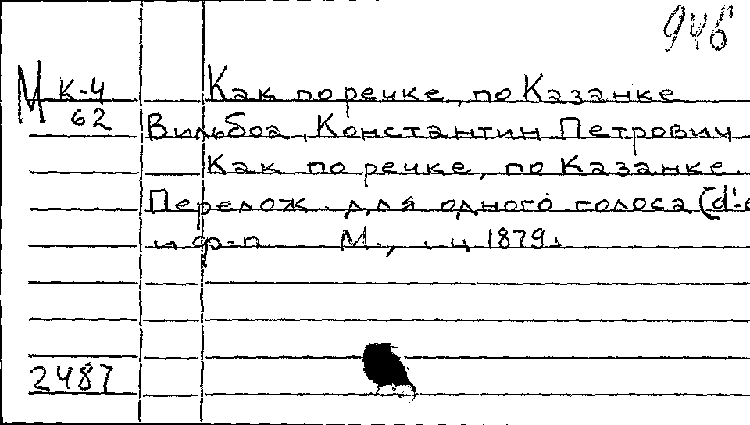 946
М К-4 Как по речке, по Казанке
62
Вильбоа, Константин Петрович
Как по речке, по Казанке.
Перелож. для одного голоса (d'-e
и ф-п М., ц 1879.
2487